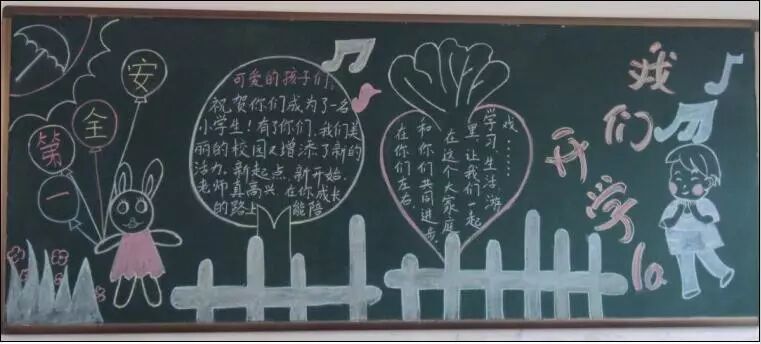 安
全
第
一
可爱的孩子们:
祝贺你们成为了一名
小学生!有了你们,我们美
丽的校园又增添了新的
活力,新起点,新开始.
老师真高兴,在你成长
的路上 能陪
在你们左右,
和你们共同进步.
在这个大家庭
里,让我们一起
学习、生活、游
戏……
我们
开学la